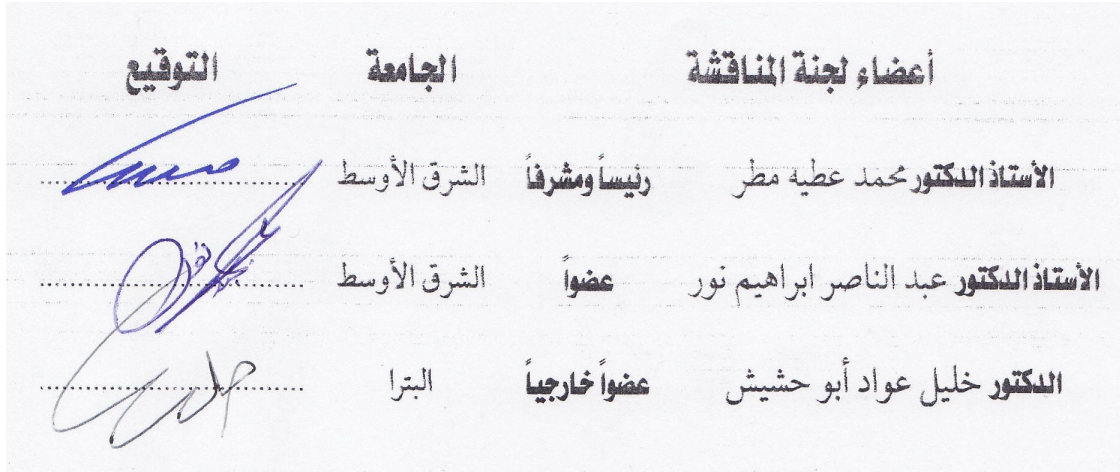 أعضاء لجنة المناقشة الجامعة التوقيع
الأستاذ الدكتور محمد عطيه مطر رئيساً ومشرفاً الشرق الأوسط ....................
الأستاذ الدكتور عبد الناصر ابراهيم نور عضواً الشرق الأوسط ....................
الدكتور خليل عواد أبو حشيش عضواً خارجياً البترا ....................